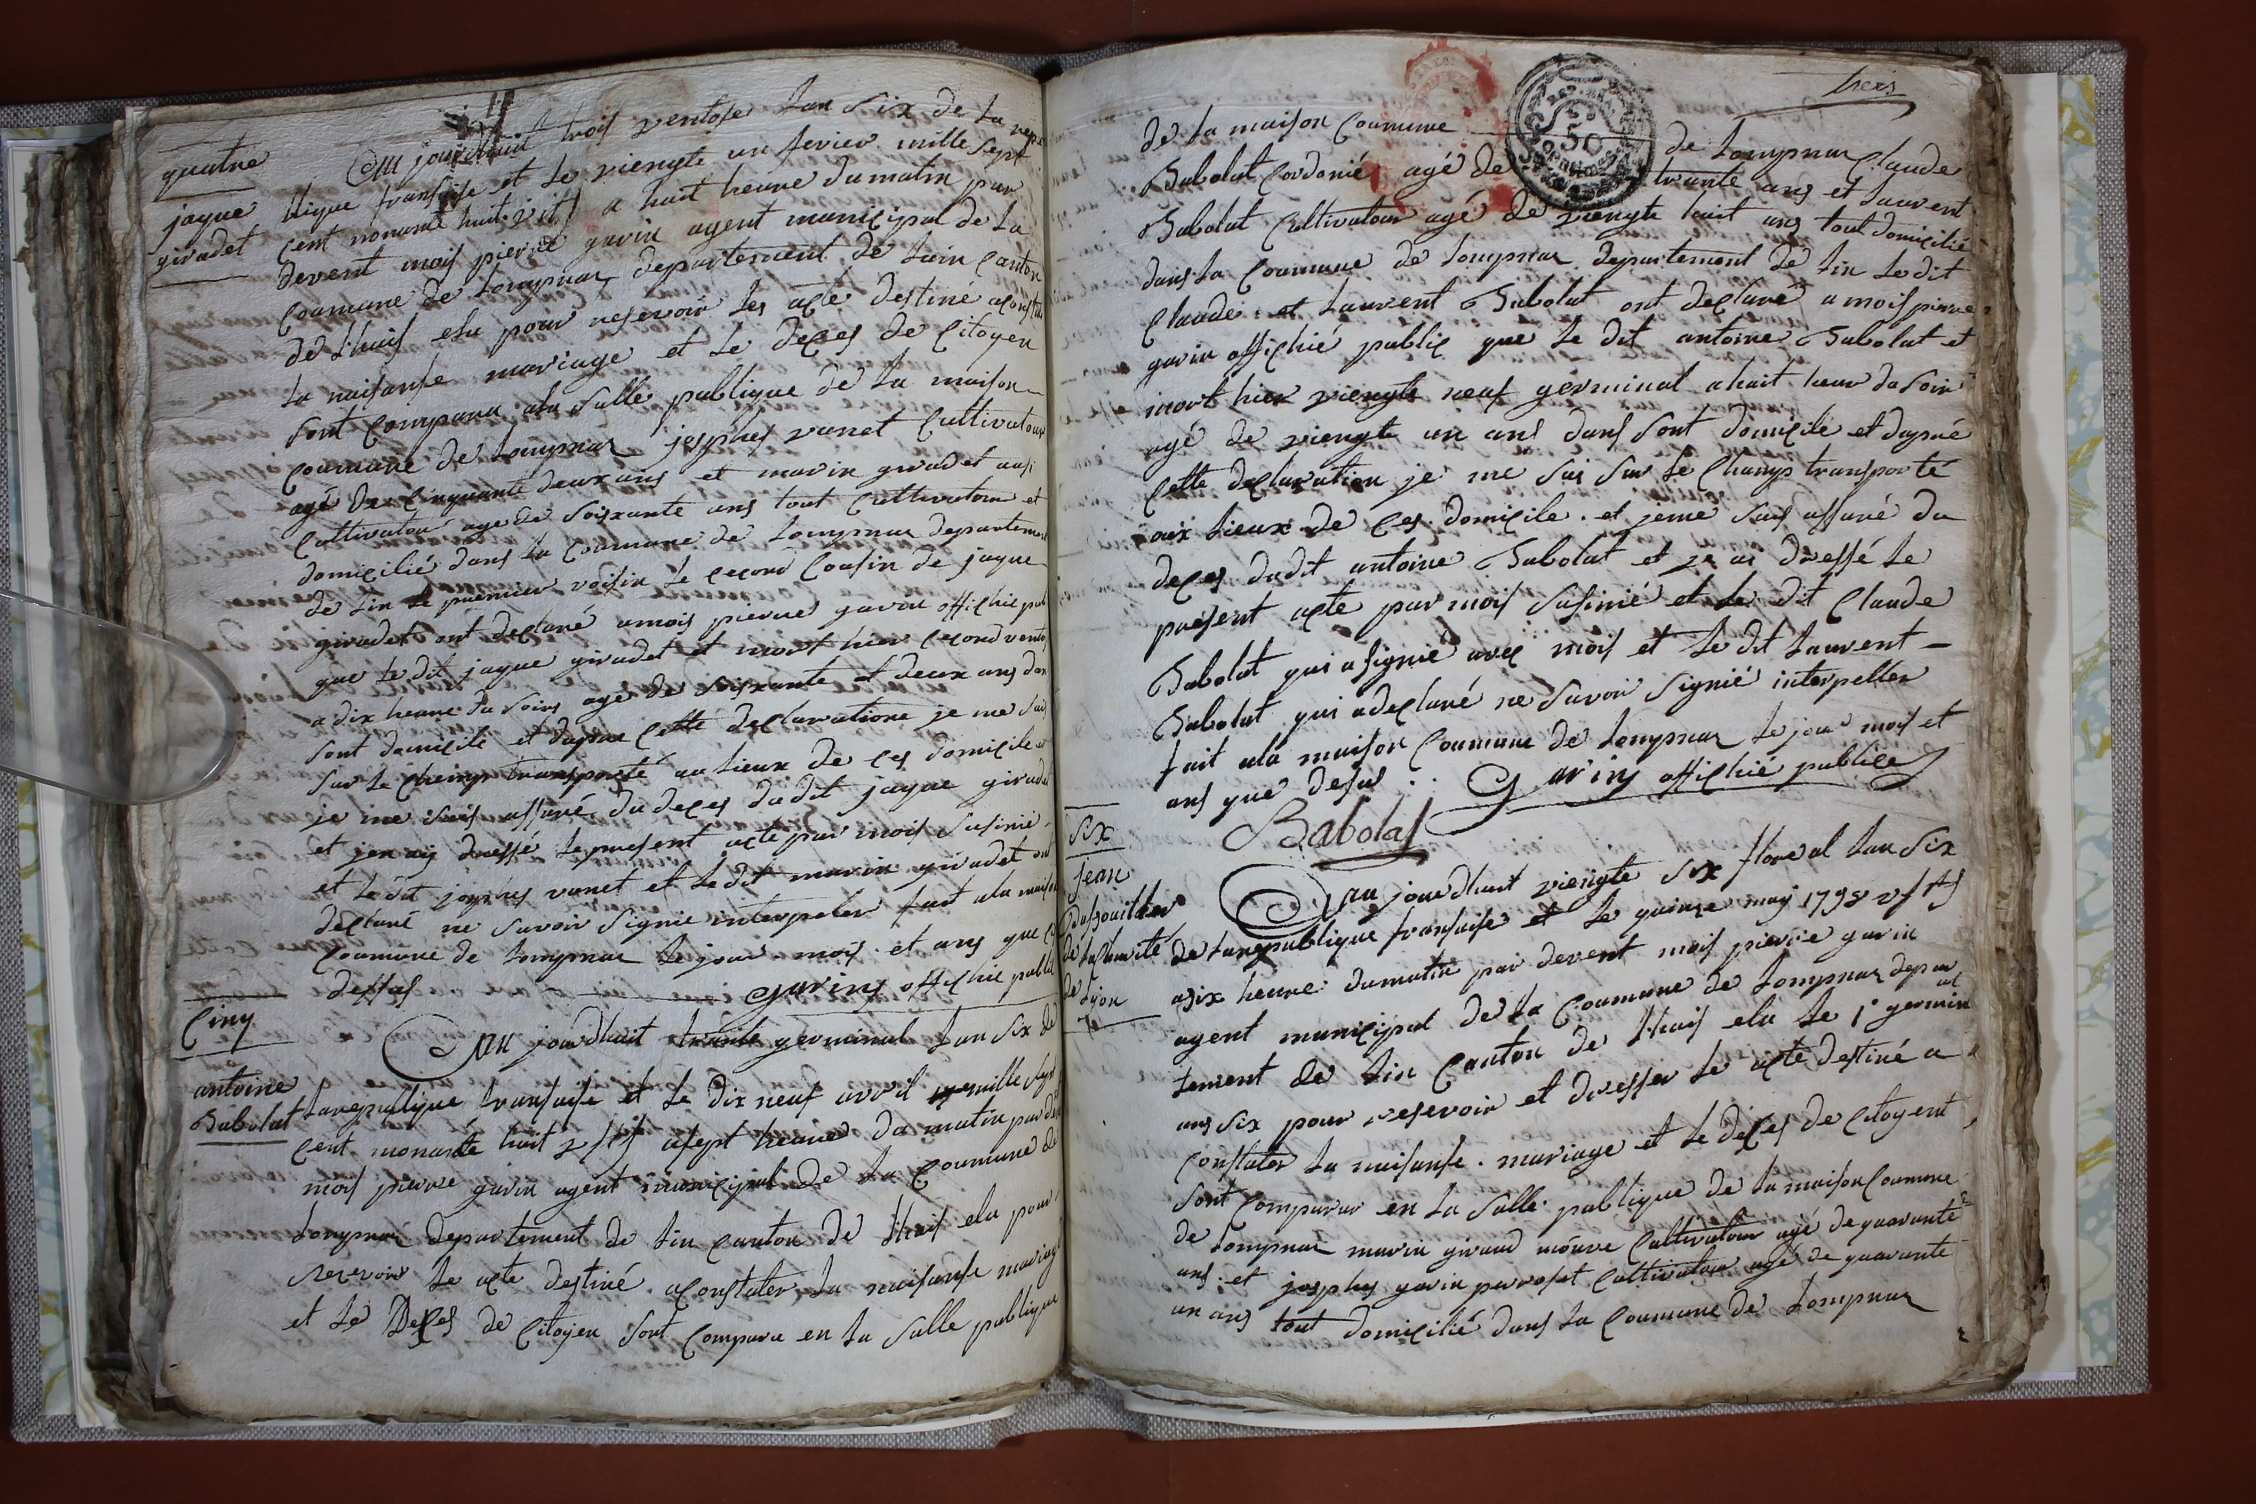 quatre
jaque
giradet
Au jourdhuit trois ventose lan six de la repu
blique fransaise et le viengte un fevier mille sept
cent nonante huit v st a huit heure du matin par
devent mois pierre garin agent municipal de la
Coumune de Lompnaz departement de Lain Canton
de Lhuis elu pour reservoir les acte destiné aconstater
la naisanse mariage et le deces de Citoyen
sont Comparu ala salle publique de la maison
Coumune de Lompnaz josphes vanet Cultivateur
agé de Cinquante deux ans et marin giradet ausi
Cultivateur age de soisxante ans tout Cultivateur et
domicilié dans la Coumune de Lompnaz departement
de Lin le premier voisin le cecond Cousin de jaque
giradet ont declaré amois pierre garin offichié pub
que le dit jaque giradet et mort hier cecond ventos
a dix heure du soire age de soisxante et deux ans dans
sont domicile et daprae Cette declaratione je me suis
sur le Champs transporté au lieux de ces domicile et
je me suis assuré du deces dudit jaque giradet
et jen aij dressé le present acte par mois susinié
et ledit josphes vanet et ledit marin giradet ont
declaré ne savoir signie interpeler fait ala maison
Coumune de Lompnaz le jour mois et ans que ci
dessas
garing offichié public
Cinq
antoine
Babolat
Au jourdhuit trante germinal lan six de
la republique transaise et le dix neuf avril mille sept
cent nonante huit v st asept heure du matin par dev
mois pierre garin agent municipal de la Coumune de
Lompnaz departement de Lin Canton de Lhuis elu pour
reservoir le acte destiné aConstater la naisanse mariage
et le Deces de Citoyen sont Comparu en la salle publique
trois
de la maison Coumune de Lompnaz Claude
Babolat Cordonié agé de trante ans et laurent
Babolat Cultivateur agé de viengte huit ans tout domicilié
dans la Coumune de Lompnaz departement de Lin le dit
Claude et laurent Babolat ont declaré a mois pierre
garin offichié public que le dit antoine Babolat et
mort hier viengte neuf germinal ahuit heur du soir
agé de viengte un ans dans sont domicile et daprae
Cette declaration je me suis sur le Champs transporté
aux lieux de ces domicile et jeme suis assuré du
deces dudit antoine Babolat et je ai dressé le
present acte par mois susinié et le dit Claude
Babolat qui a signié avec mois et le dit laurent
Babolat qui adeclaré ne savoir signié interpeller
fait ala maison Coumune de Lompnaz le jour mois et
ans que desus
Garing offichié publice
Babolat
six
jean
de la Charité
de Lyon
Au jourdhuit viengte six floreal lan six
de la republique fransaise et le quinze may 1798 v st
asix heure du matin par devent mois pierre garin
agent municipal de la Coumune de Lompnaz depar
tement de Lin Canton de Lhuis elu le 1er germinal
ans six pour reservoir et dresser le acte destiné a
Constater la naisanse mariage et le deces de Citoyent
sont Comparu en la salle publique de la maison Coumune
de Lompnaz marin giraud Cultivateur agé de quarante
ans et josphes garin perrosat Cultivateur agé de quarante
un ans tout domicilié dans la Coumune de Lompnaz